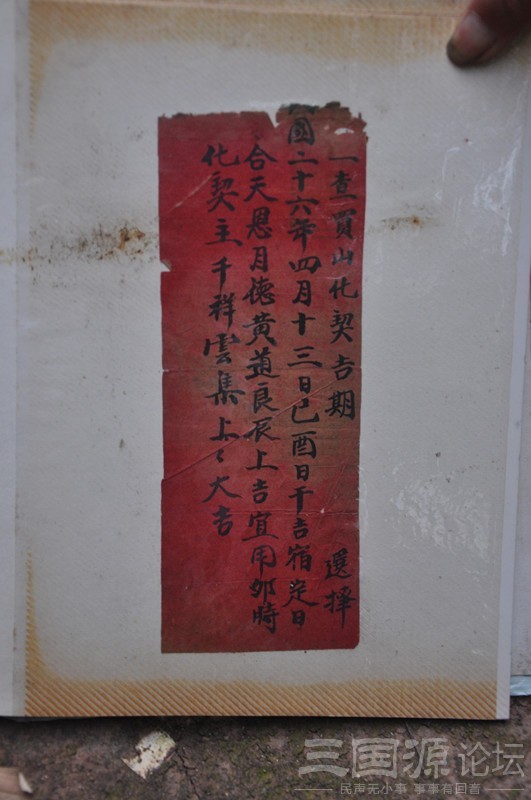 一查買山化契吉期 選擇
國二十六年四月十三日己酉日千吉宿定日
合天恩月德黄道良辰上吉宜用卯時
化契主千祥雲集上々大吉
三国源论坛
民声无小事 事事有回音